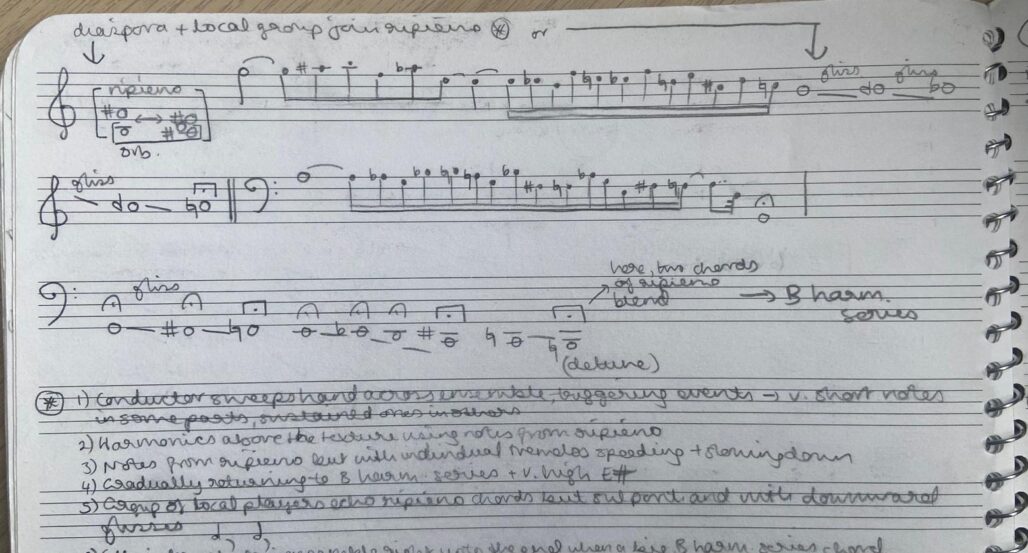 diaspora + local group join ripieno * or
ripieno
orb.
gliss gliss
gliss
gliss
here, two chords
of ripieno
blend → B harm.
series
(detune)
* 1) Conductor sweeps hand across ensemble, triggering events → v. short notes
in some parts, sustained ones in others
2) Harmonics above the texture using notes from ripieno
3) Notes from ripieno but with individual tremolos speeding + slowing down
4) Gradually returning to B harm. series + v. high E#
5) Group of local players echo ripieno chords but sul pont and with downward
glisses
right up to the end when a big B harm. series chord